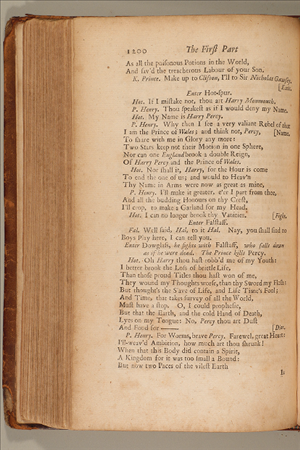 1200 The First Part
As all the poisonous Potions in the World,
And sav'd the treacherous Labour of your Son.
K. Prince. Make up to Clifton, I'll to Sir Nicholas Gausey.
[Exit.
Enter Hotspur.
Hot. If I mistake not, thou art Harry Monmouth.
P. Henry. Thou speakest as if I would deny my Name.
Hot. My Name is Harry Percy.
P. Henry. Why then I see a very valiant Rebel of that
I am the Prince of Wales; and think not, Percy, [Name.
To share with me in Glory any more:
Two Stars keep not their Motion in one Sphere,
Nor can one England brook a double Reign,
Of Harry Percy and the Prince of Wales.
Hot. Nor shall it, Harry, for the Hour is come
To end the one of us; and would to Heav'n
Thy Name in Arms were now as great as mine.
P. Henry. I'll make it greater, e'er I part from thee,
And all the budding Honours on thy Crest,
I'll crop, to make a Garland for my Head.
Hot. I can no longer brook thy Vanities. [Fight.
Enter Falstaff.
Fal. Well said, Hal, to it Hal. Nay, you shall find no
Boys Play here, I can tell you.
Enter Dowglass, he fights with Falstaff, who falls down
as if he were dead. The Prince kills Percy.
Hot. Oh Harry thou hast robb'd me of my Youth:
I better brook the Loss of brittle Life,
Than those proud Titles thou hast won of me,
They wound my Thoughts worse, than thy Sword my Flesh:
But thought's the Slave of Life, and Life Time's Fool;
And Time, that takes survey of all the World,
Must have a stop. O, I could prophesie,
But that the Earth, and the cold Hand of Death,
Lyes on my Tongue: No, Percy thou art Dust
And Food for —— [Dies.
P. Henry. For Worms, brave Percy. Farewel, great Heart:
Ill-weav'd Ambition, how much art thou shrunk!
When that this Body did contain a Spirit,
A Kingdom for it was too small a Bound:
But now two Paces of the vilest Earth
Is